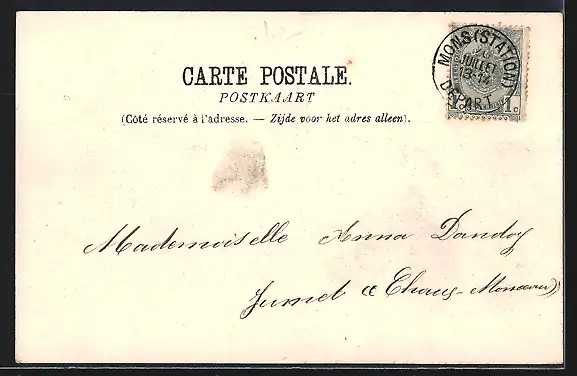 CARTE POSTALE.
POSTKAART
(Côté réservé à l'adresse. — Zijde voor het adres alleen).
MONS (STATION)
JUILLET
13-14
DEPART
1c 1c
Mademoiselle Anna Dandoy
Jumet (Chaus-Monceau)